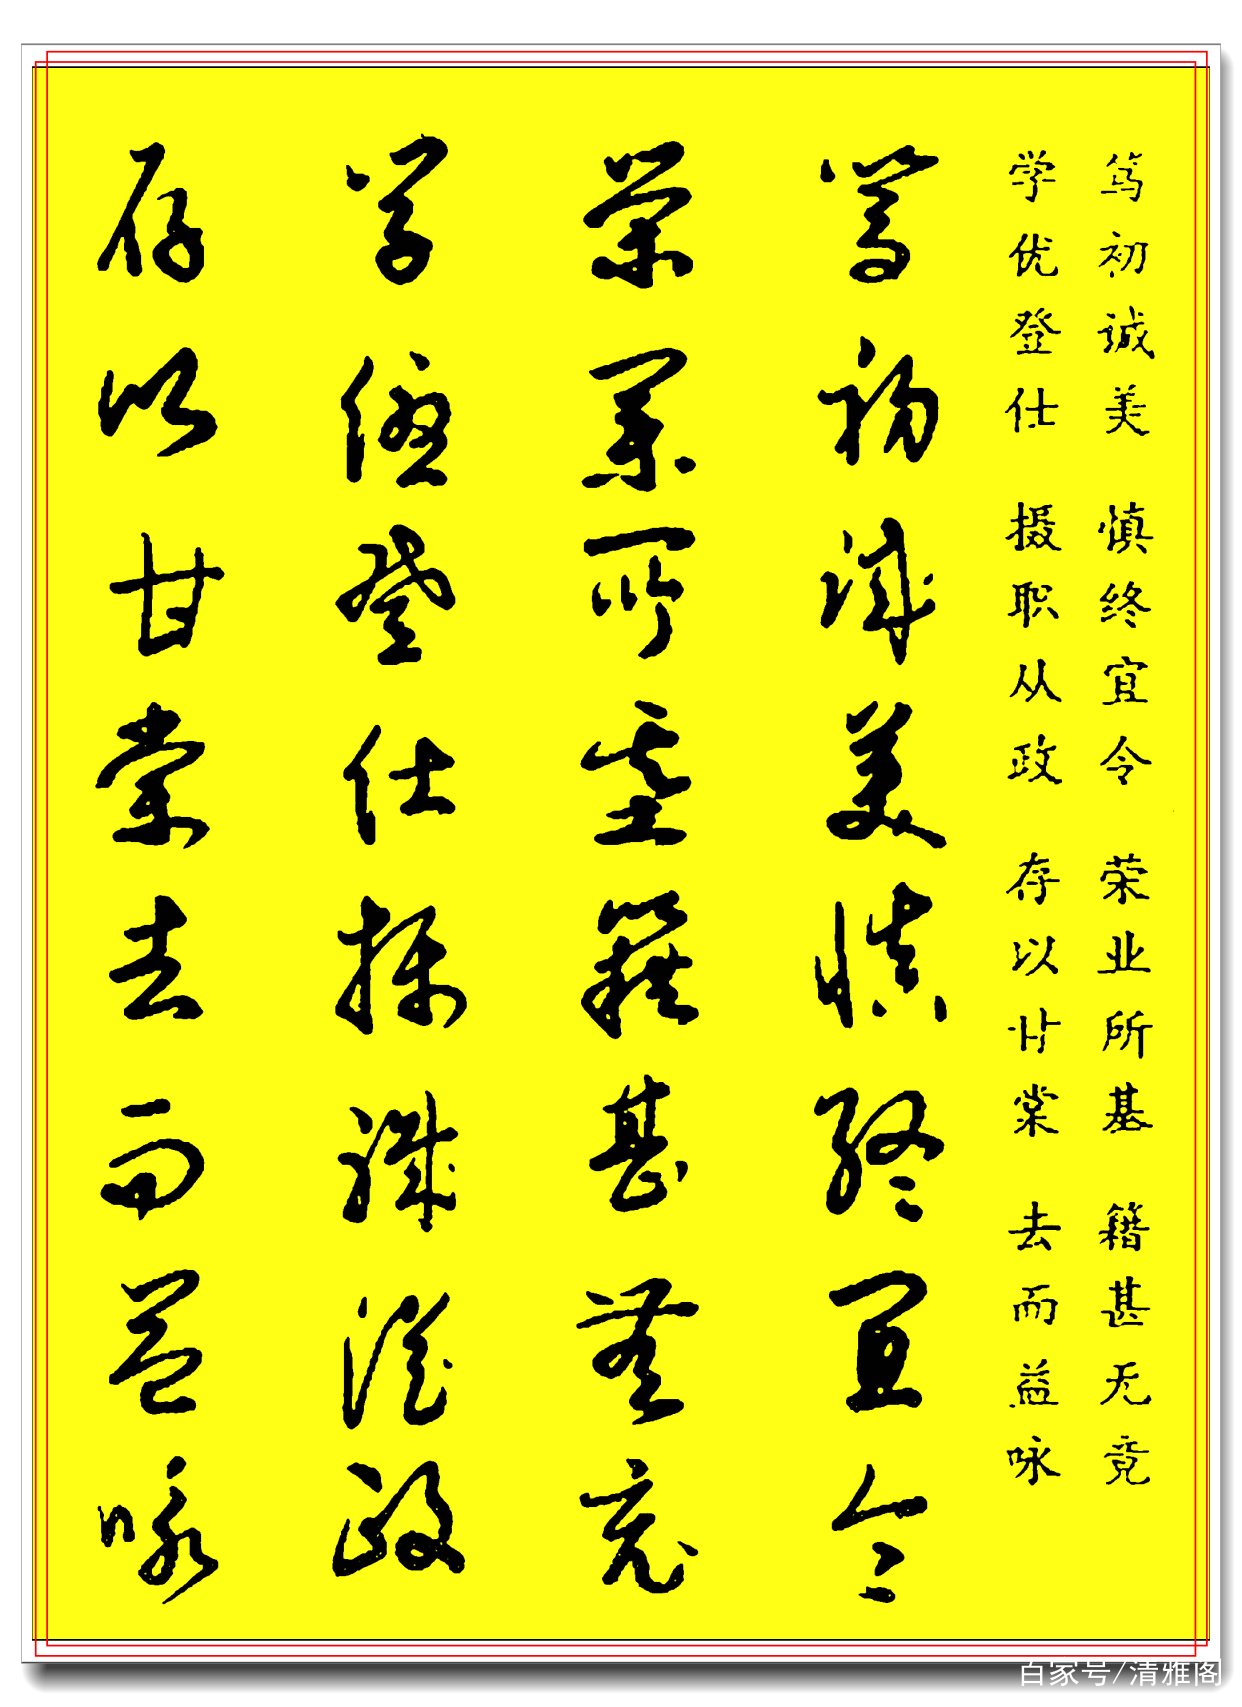 笃初诚美 慎终宜令 荣业所基 籍甚无竟
学优登仕 摄职从政 存以甘棠 去而益咏
笃初诚美慎终宜令
荣业所基籍甚无竟
学优登仕摄职从政
存以甘棠去而益咏
百家号/清雅阁